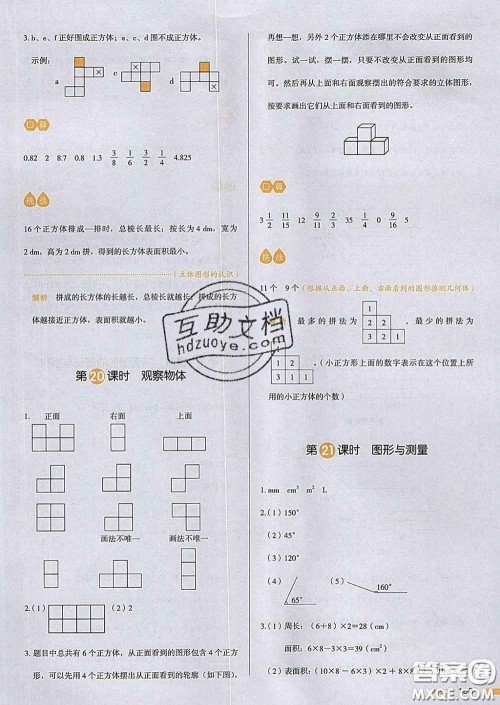 3. b、e、f 正好围成正方体；a、c、d 围不成正方体。
示例：
a
c
d
口算
0.82 2 8.7 0.8 1.3 3/8 1/6 3/2 3/4 4.825
挑战
16 个正方体排成一排时，总棱长最长；按长为 4 dm，宽为
2 dm，高为 2 dm 拼，得到的长方体表面积最小。
（立体图形的认识）
解析 拼成的长方体的长越长，总棱长就越长；拼成的长方
体越接近正方体，表面积就越小。
第20课时 观察物体
1. 正面 右面 上面
画法不唯一 画法不唯一
2.（1） （2）2
3. 题目中总共有 6 个正方体，从正面看到的图形包含 4 个正方
形，可以先用 4 个正方体摆出从正面看到的轮廓（如下图），
再想一想，另外 2 个正方体添在哪里不会改变从正面看到的
图形。试一试，摆一摆，只要不改变从正面看到的图形均
可，然后再从上面和右面观察摆出的符合要求的立体图形，
按要求画出它们从上面和右面看到的图形。
口算
3 1/2 11/15 12 9/11 35 0 9/16 5
挑战
11 个 9 个（根据从正面、上面、右面看到的图形推测几何体）
最多的拼法为
1
2 2
3 2 1
，最少的拼法为
1
1 2
3 1 1
（小正方形上面的数字表示在这个位置上所
用的小正方体的个数）
第21课时 图形与测量
1. mm cm³ m² L
2.（1）150°
（2）45°
（3）120°
（4）
65°
（5）
160°
3.（1）周长：（6＋8）×2＝28（cm）
面积：6×8－3×3＝39（cm²）
（2）表面积：（10×8－6×3）×2＋8×8
互助文档
hdzuoye.com
答案圈
MXQE.COM